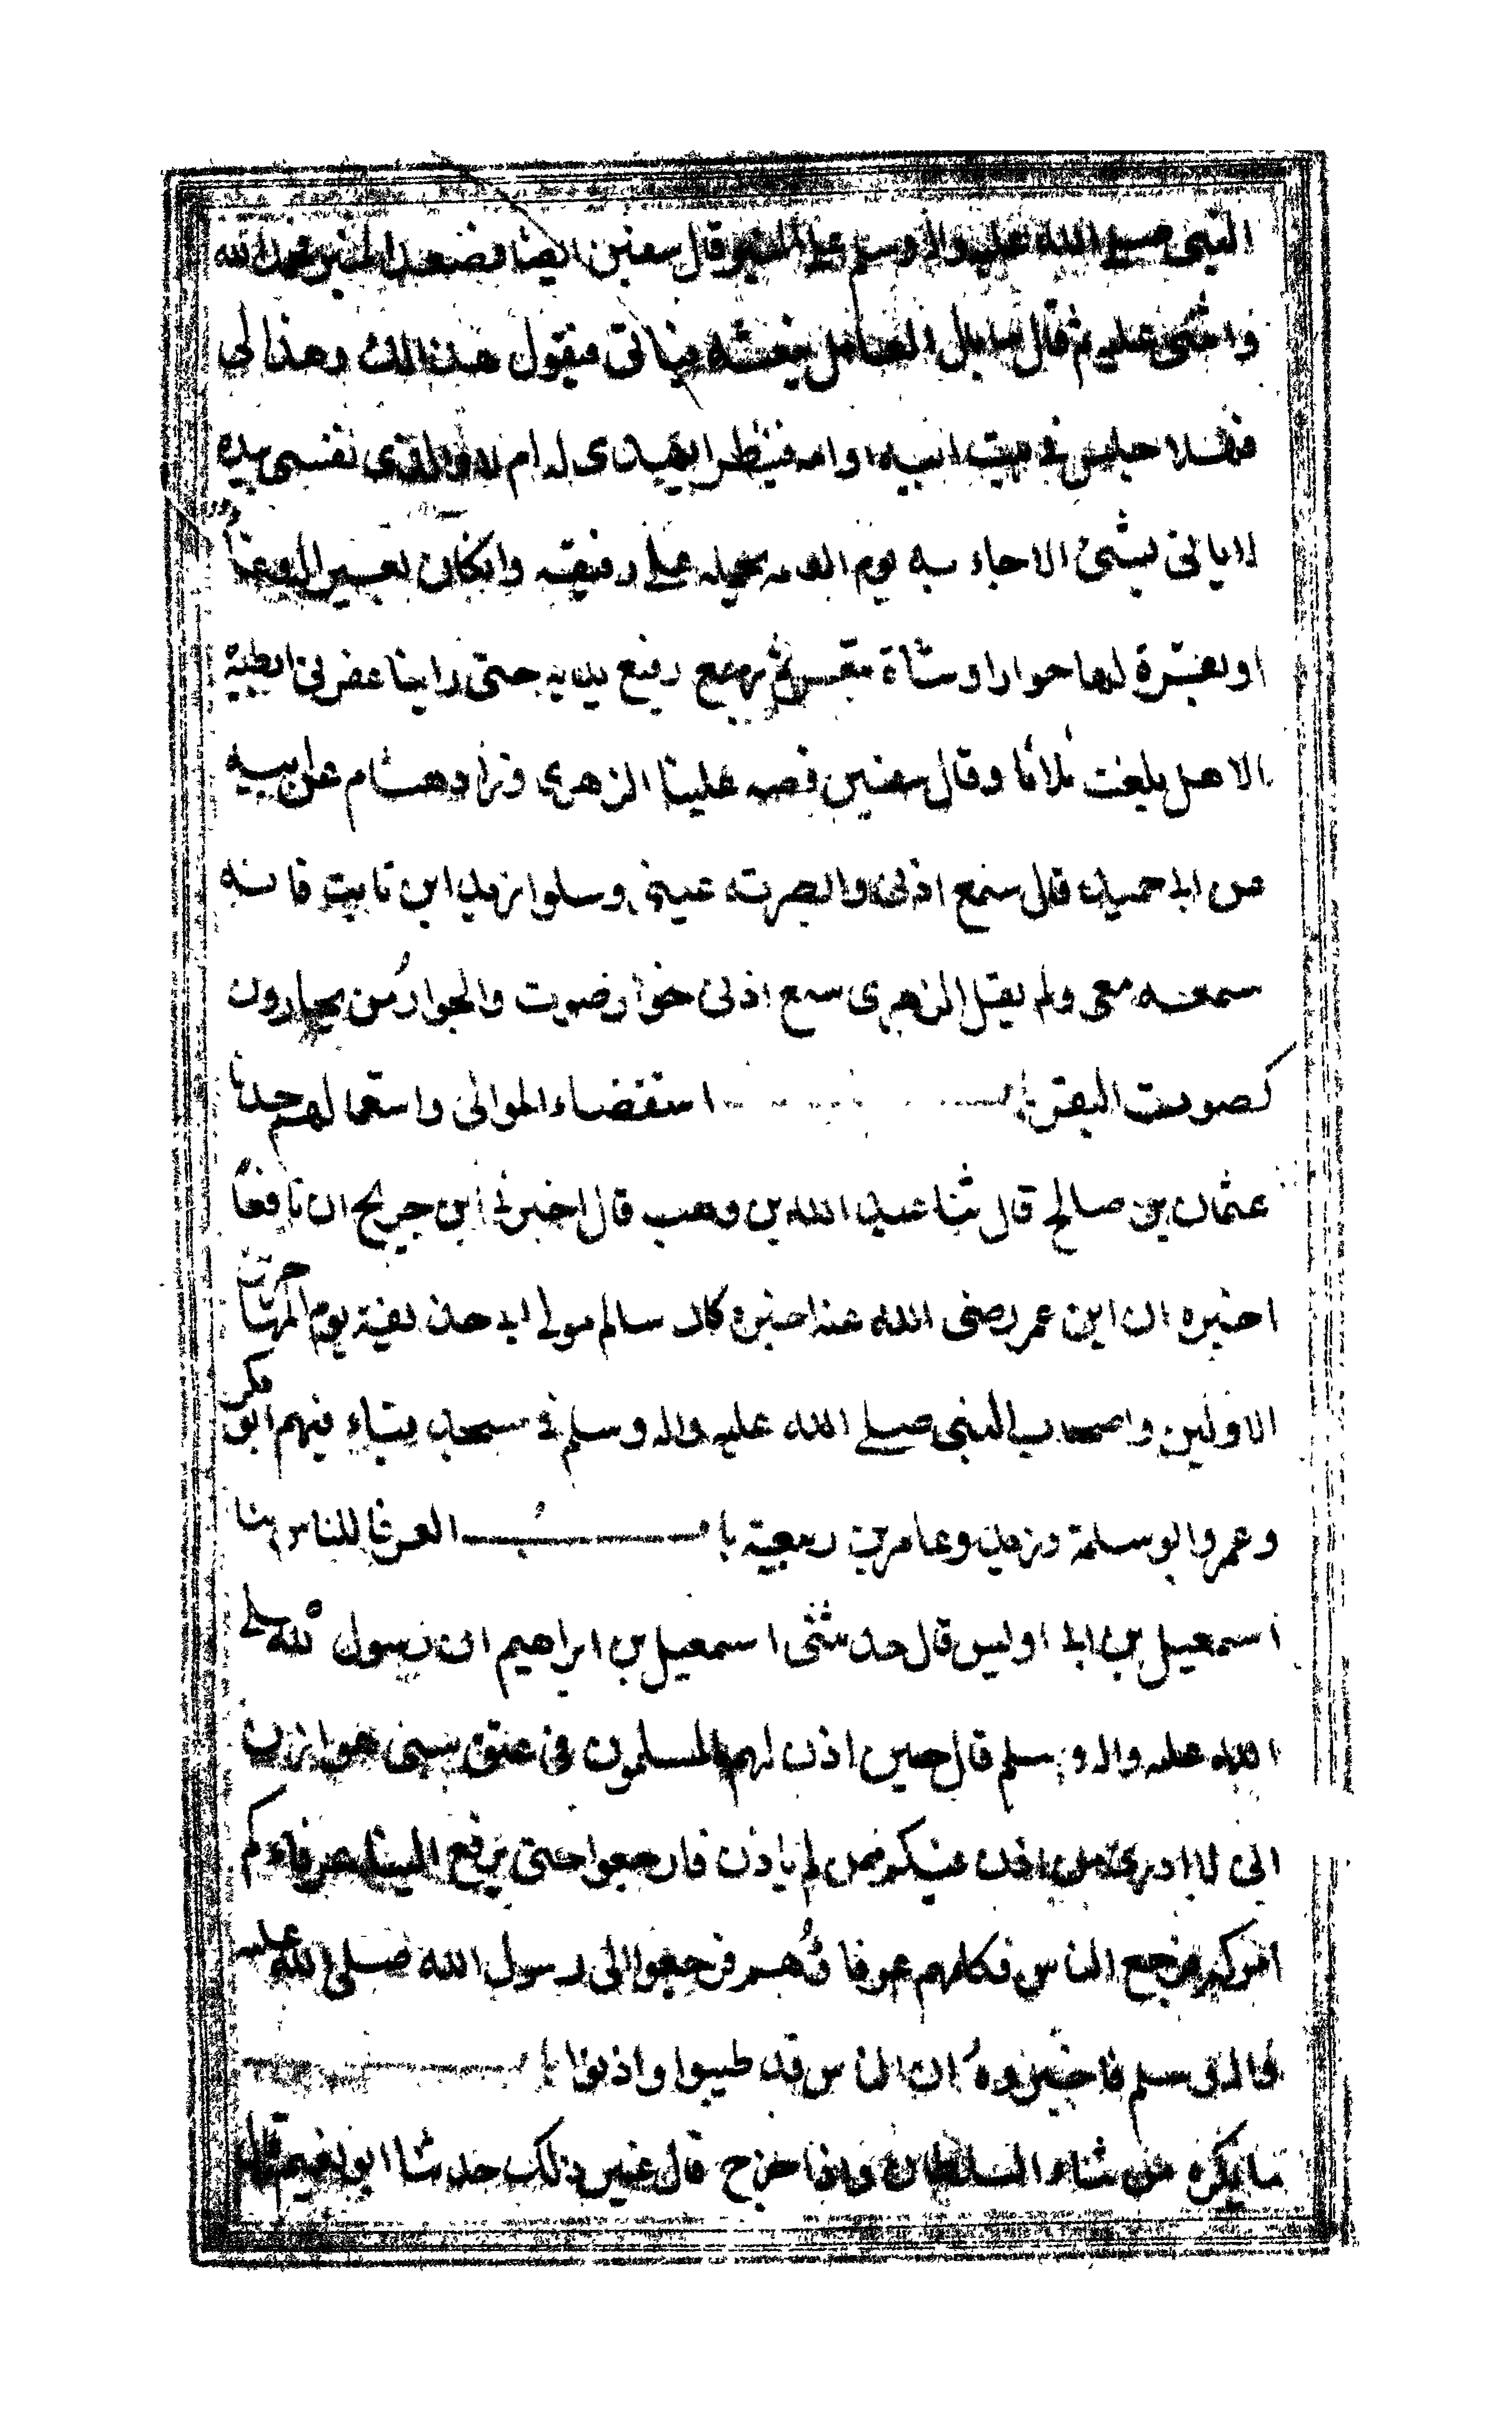 النبى صلى الله عليه واله وسلم على المنبر وقال سفين ايضا فصعد المنبر فحمد الله
واثنى عليه ثم قال ما بال العامل نبعثه فياتى فيقول هذا لك وهذا لى
فهلا جلس فى بيت ابيه او امه فينظر ايهدى له ام لا والذى نفسى بيده
لا ياتى بشىء الا جاء به يوم القيمه يحمله على رقبته وان كان بعيرا له رغا
او بقرة لها خوار او شاة تيعر ثم رفع يديه حتى راينا عفرتى ابطيه
الا هل بلغت ثلاثا وقال سفين قصه علينا الزهرى وزاد هشام عن ابيه
عن ابى حميد قال سمع اذنى وابصرته عينى وسلوا زيد ابن ثابت فانه
سمعه معى ولم يقل الزهرى سمع اذنى خوار صوت والجوار من يجارون
كصوت البقر باب استقضاء الموالى واستعمالهم حدثنا
عثمان بن صالح قال ثنا عبد الله بن وهب قال اخبرنى ابن جريج ان نافعا
اخبره ان ابن عمر رضى الله عنه اخبره كان سالم مولى ابى حذيفة يوم المهاجرين
الاولين واصحاب النبى صلى الله عليه واله وسلم فى مسجد قباء فيهم ابو بكر
وعمر وابو سلمة وزيد وعامر بن ربيعة باب العرفا للناس ثنا
اسمعيل بن ابى اويس قال حدثنى اسمعيل بن ابراهيم ان رسول الله صلى
الله عليه واله وسلم قال حين اذن لهم المسلمون فى عتق سبى هوازن
انى لا ادرى من اذن منكم ممن لم ياذن فارجعوا حتى يرفع الينا عرفاءكم
امركم فرجع الناس فكلمهم عرفاؤهم فرجعوا الى رسول الله صلى الله عليه
واله وسلم فاخبروه ان الناس قد طيبوا واذنوا باب
ما يكره من ثناء السلطان واذا خرج قال غير ذلك حدثنا ابو نعيم قال